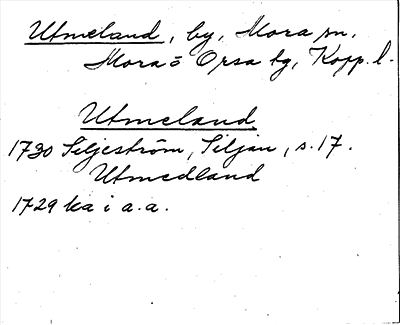 Utmeland, by, Mora sn,
Mora o Orsa tg, Kopp. l.
Utmeland
1730 Siljeström, Siljan, s. 17.
Utmedland
1729 ka i a. a.